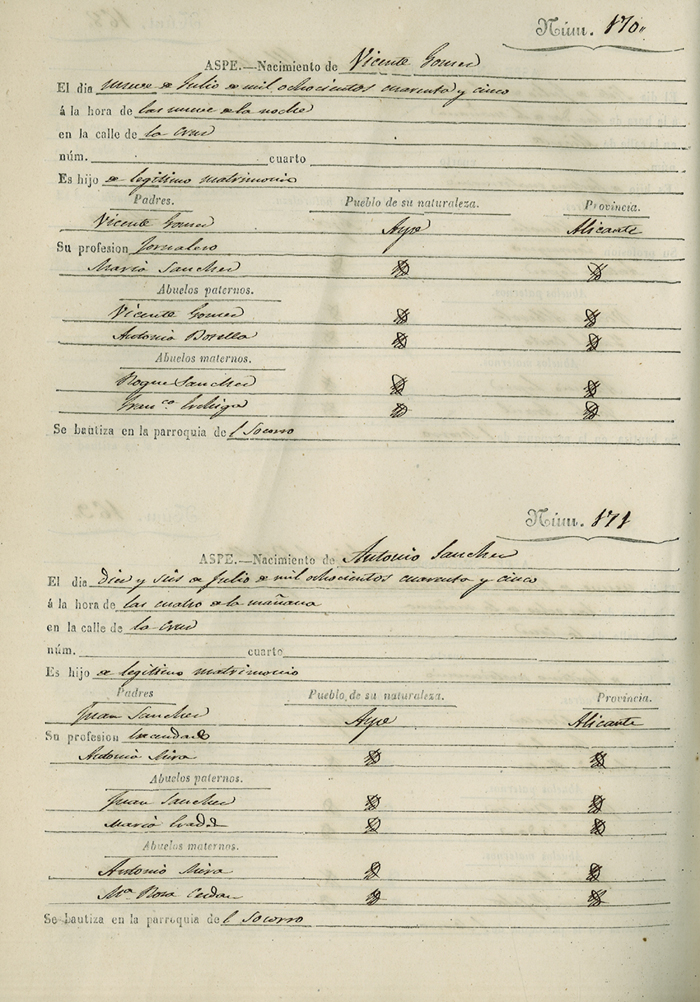 Núm. 170.
ASPE.—Nacimiento de Vicente Gomez
El dia nueve de Julio de mil ochocientos cuarenta y cinco
á la hora de las nueve de la noche
en la calle de la Cruz
núm. cuarto
Es hijo de legitimo matrimonio
Padres. Pueblo de su naturaleza. Provincia.
Vicente Gomez Aspe Alicante
Su profesion Jornalero
Maria Sanchez
Abuelos paternos.
Vicente Gomez
Antonia Botella
Abuelos maternos.
Roque Sanchez
Franca
Se bautiza en la parroquia de l Socorro
Núm. 171
ASPE.—Nacimiento de Antonio Sanchez
El dia diez y seis de Julio de mil ochocientos cuarenta y cinco
á la hora de las cuatro de la mañana
en la calle de la Cruz
núm. cuarto
Es hijo de legitimo matrimonio
Padres Pueblo de su naturaleza. Provincia.
Juan Sanchez Aspe Alicante
Su profesion
Antonia Mira
Abuelos paternos.
Juan Sanchez
Maria
Abuelos maternos.
Antonio Mira
Mª Rosa
Se bautiza en la parroquia de l Socorro